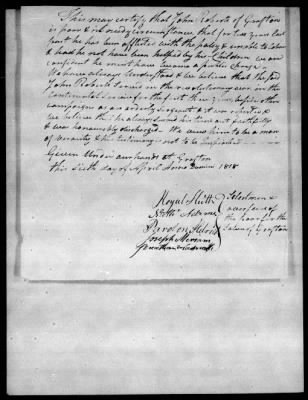 This may certify that John Roberts of Grafton
is poor & in needy circumstance that for ten years last
past he has been afflicted with the palsy & unable to labour
& had he not have been helped by his Children we are
confident he must have become a public charge
We have always understood & we believe that the said
John Roberts served in the revolutionary war in the
Continental Service for the first three years, before other
campaigns as an orderly sergeant
we believe that he always served his time out faithfully
& was honourably discharged. We view him to be a man
of veracity & his testimony not to be impeached
Given under our hands at Grafton
this sixth day of April Anno Domini 1818
Royal
Selectmen &
overseers of
the poor for the
town of Grafton
Pardon Aldrich
Joseph Merriam
Jonathan